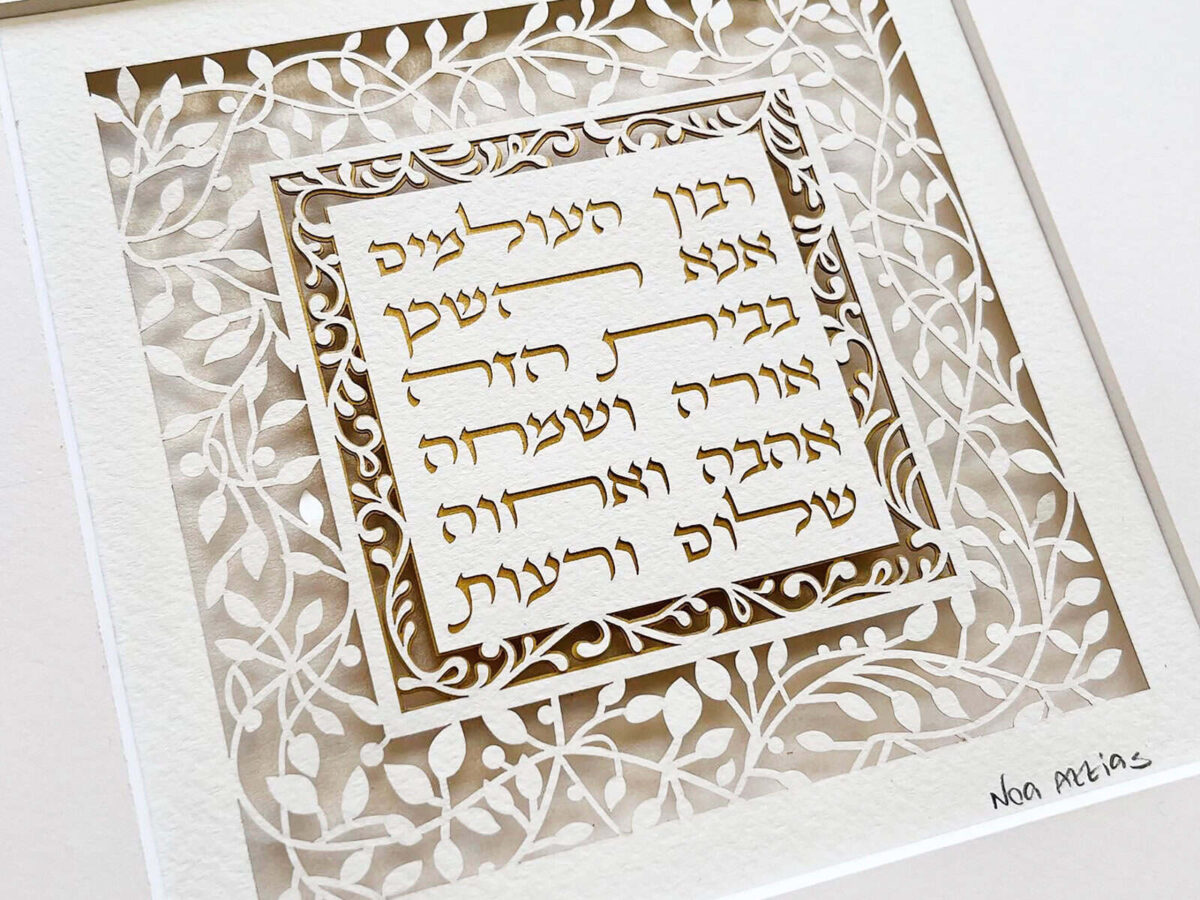 רבון העולמים
אנא השכן
בבית הזה
אורה ושמחה
אהבה ואחוה
שלום ורעות
Noa Attias